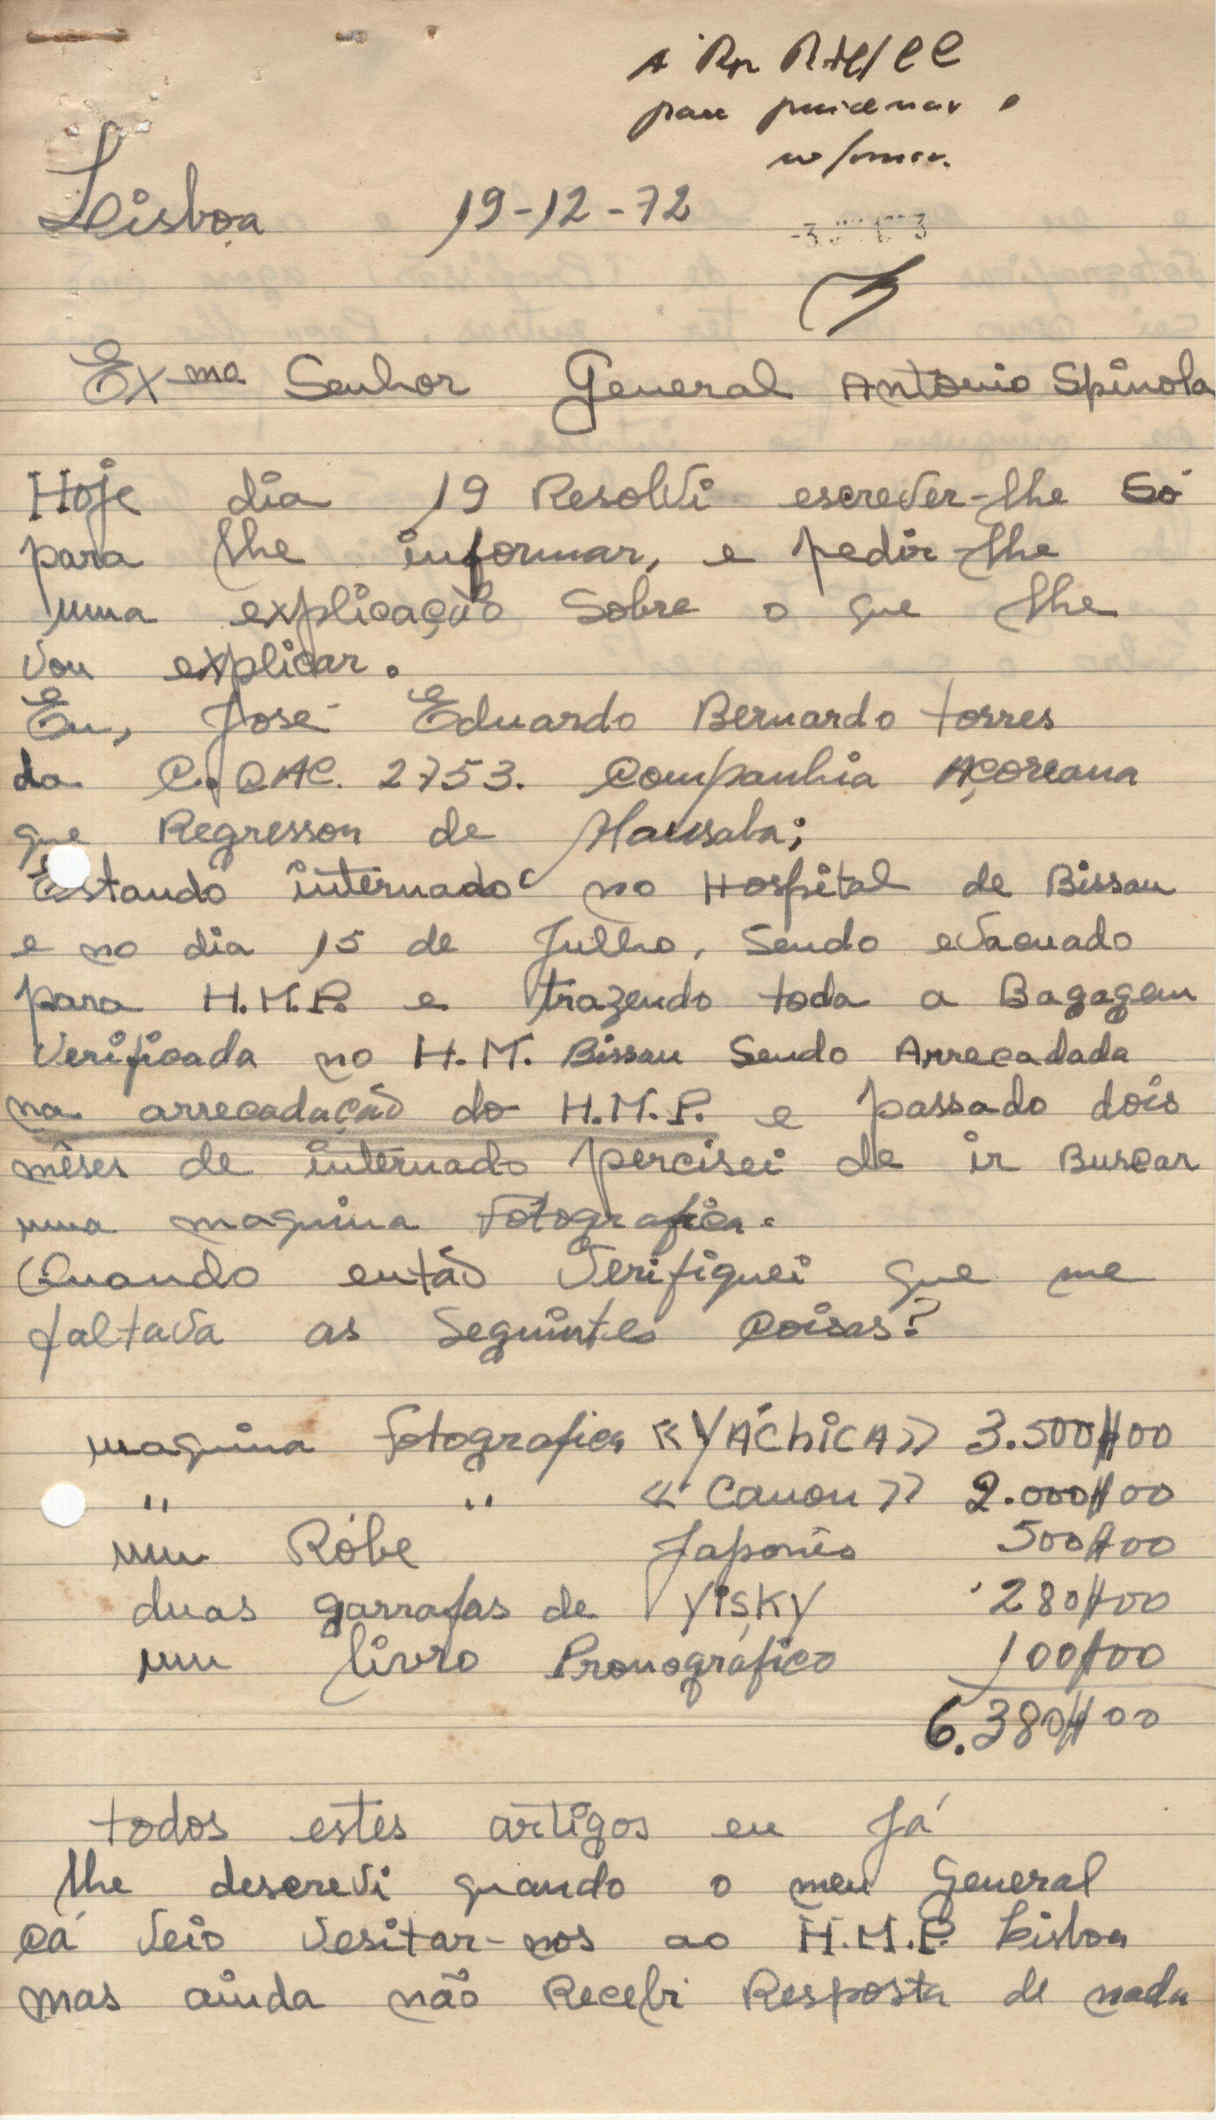 para
Lisboa 19-12-72
Exma Senhor General Antonio Spinola
Hoje dia 19 Resolvi escrever-lhe só
para lhe informar, e pedir-lhe
uma explicação Sobre o que lhe
vou explicar.
Eu, José Eduardo Bernardo torres
da C. CAC. 2753. Companhia Açoreana
que Regressou de Mansaba;
Estando internado no Hospital de Bissau
e no dia 15 de Julho, Sendo evacuado
para H.M.P. e trazendo toda a Bagagem
Verificada no H.M. Bissau Sendo Arrecadada
na arrecadação do H.M.P. e passado dois
mêses de internado percisei de ir Buscar
uma maquina fotografica.
Quando então Verifiquei que me
faltava as Seguintes Coisas?
maquina fotografica «YÁChiCA» 3.500$00
" " «Canon» 2.000$00
um Róbe Japonês 500$00
duas garrafas de Yisky 280$00
um livro Pronográfico 100$00
6.380$00
todos estes artigos eu Já
lhe descrevi quando o meu General
cá veio vesitar-nos ao H.M.P. Lisboa
mas ainda não Recebi Resposta de nada